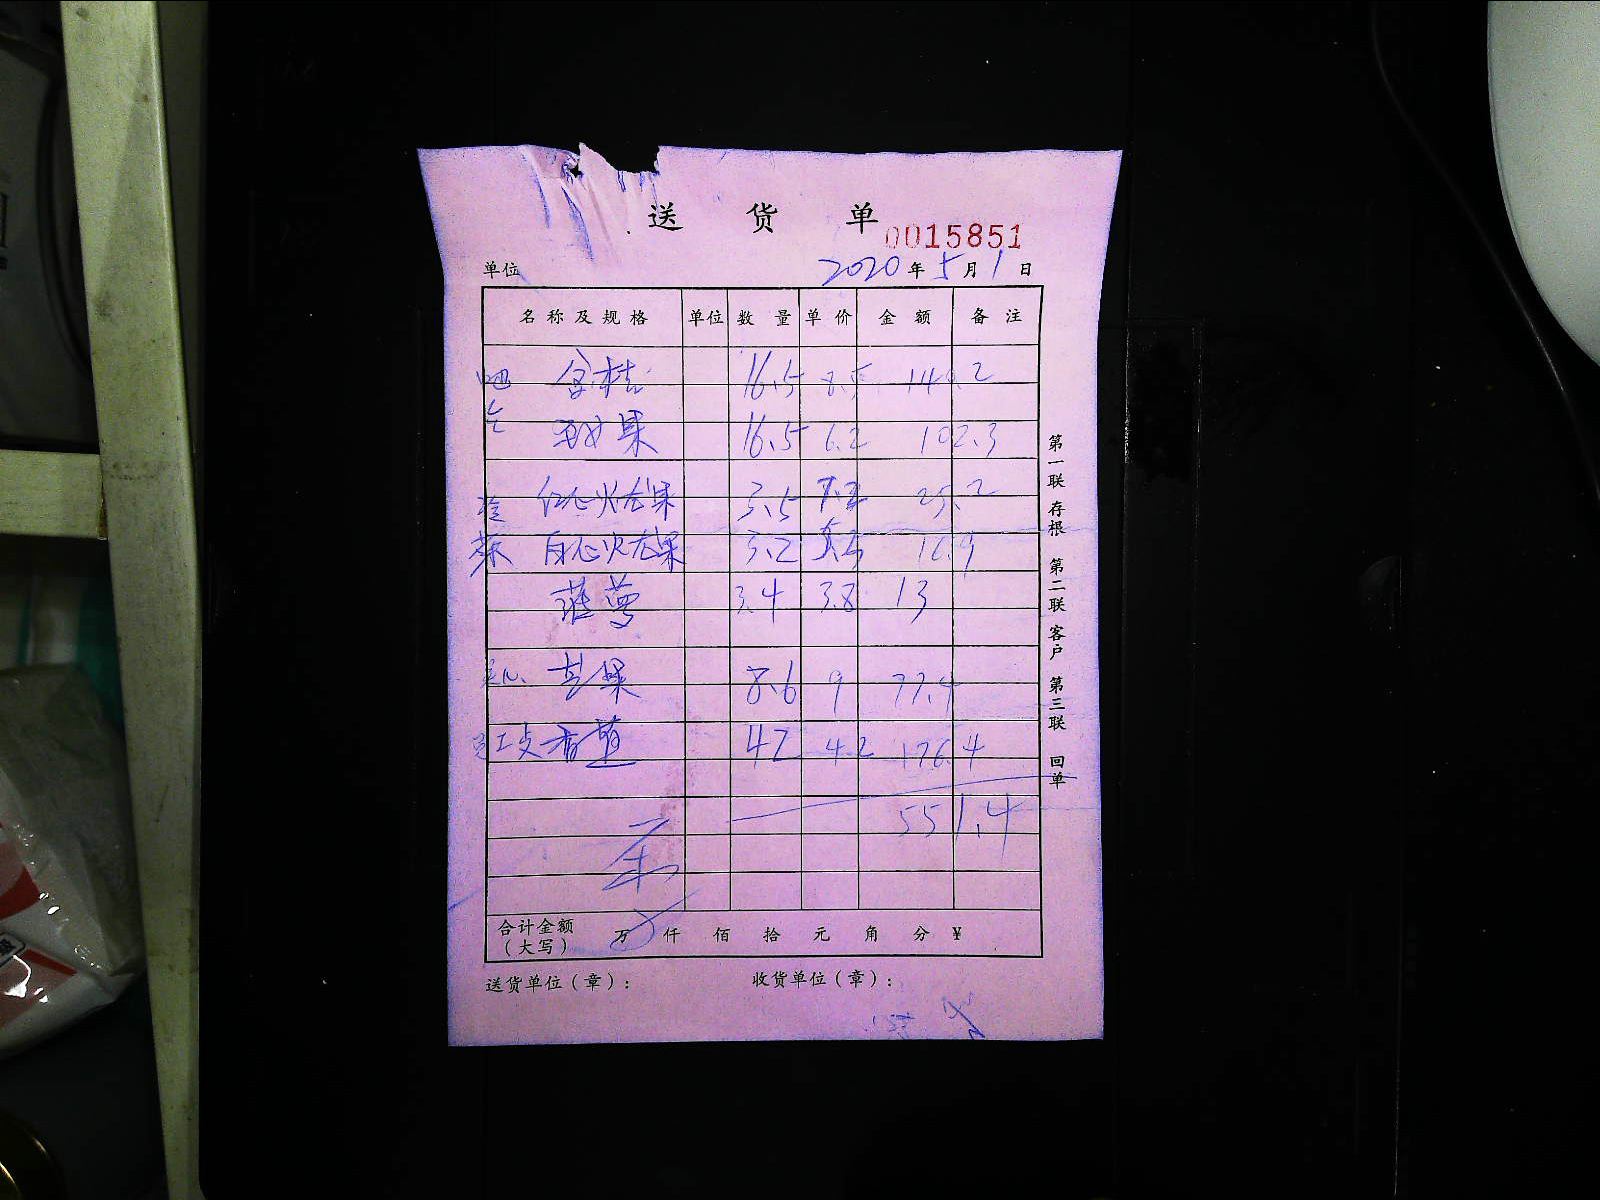 送 货 单
0015851
单位 2020年5月1日
名称及规格 单位 数量 单价 金额 备注
吧 金桔 16.5 8.5 140.2
台 果 16.5 6.2 102.3
红心火龙果 3.5 7.2 25.2
菜 白心火龙果 3.2 16.9
菠萝 3.4 3.8 13
芒果 8.6 9 77.4
员工支 香蕉 42 4.2 176.4
551.4
合计金额
(大写) 万 仟 佰 拾 元 角 分 ¥
送货单位(章): 收货单位(章):
第一联 存根 第二联 客户 第三联 回单